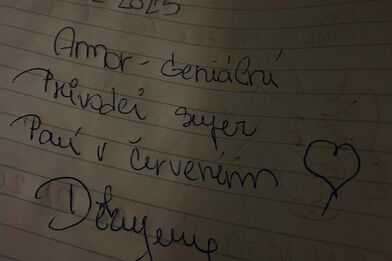 2025
Amor - Geniální
Průvodci super
Paní v červeném
Děkujeme